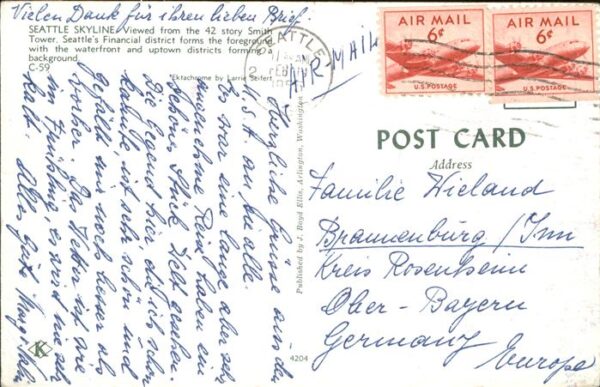 Vielen Dank für ihren lieben Brief.
SEATTLE SKYLINE. Viewed from the 42 story Smith
Tower. Seattle's Financial district forms the foreground
with the waterfront and uptown districts forming a
background.
C-59
"Ektachrome by Larrie Seifert,
SEATTLE
FEB
AIR-MAIL
AIR MAIL
6¢
U.S. POSTAGE
AIR MAIL
6¢
U.S. POSTAGE
Herzliche Grüsse aus den
U.S.A. an Sie alle.
Es war eine lange aber sehr
Reise haben eine
schöne Stück Welt gesehen.
Die Gegend hier
ist sehr schön und
gefällt mir noch besser als
vorher. Das Wetter ist wie
im Frühling, es wird nie sehr
kalt. Alles gute
Published by J. Boyd Ellis, Arlington, Washington
K
4204
POST CARD
Address
Familie Wieland
Brannenburg/Inn
Kreis Rosenheim
Ober-Bayern
Germany
Europe